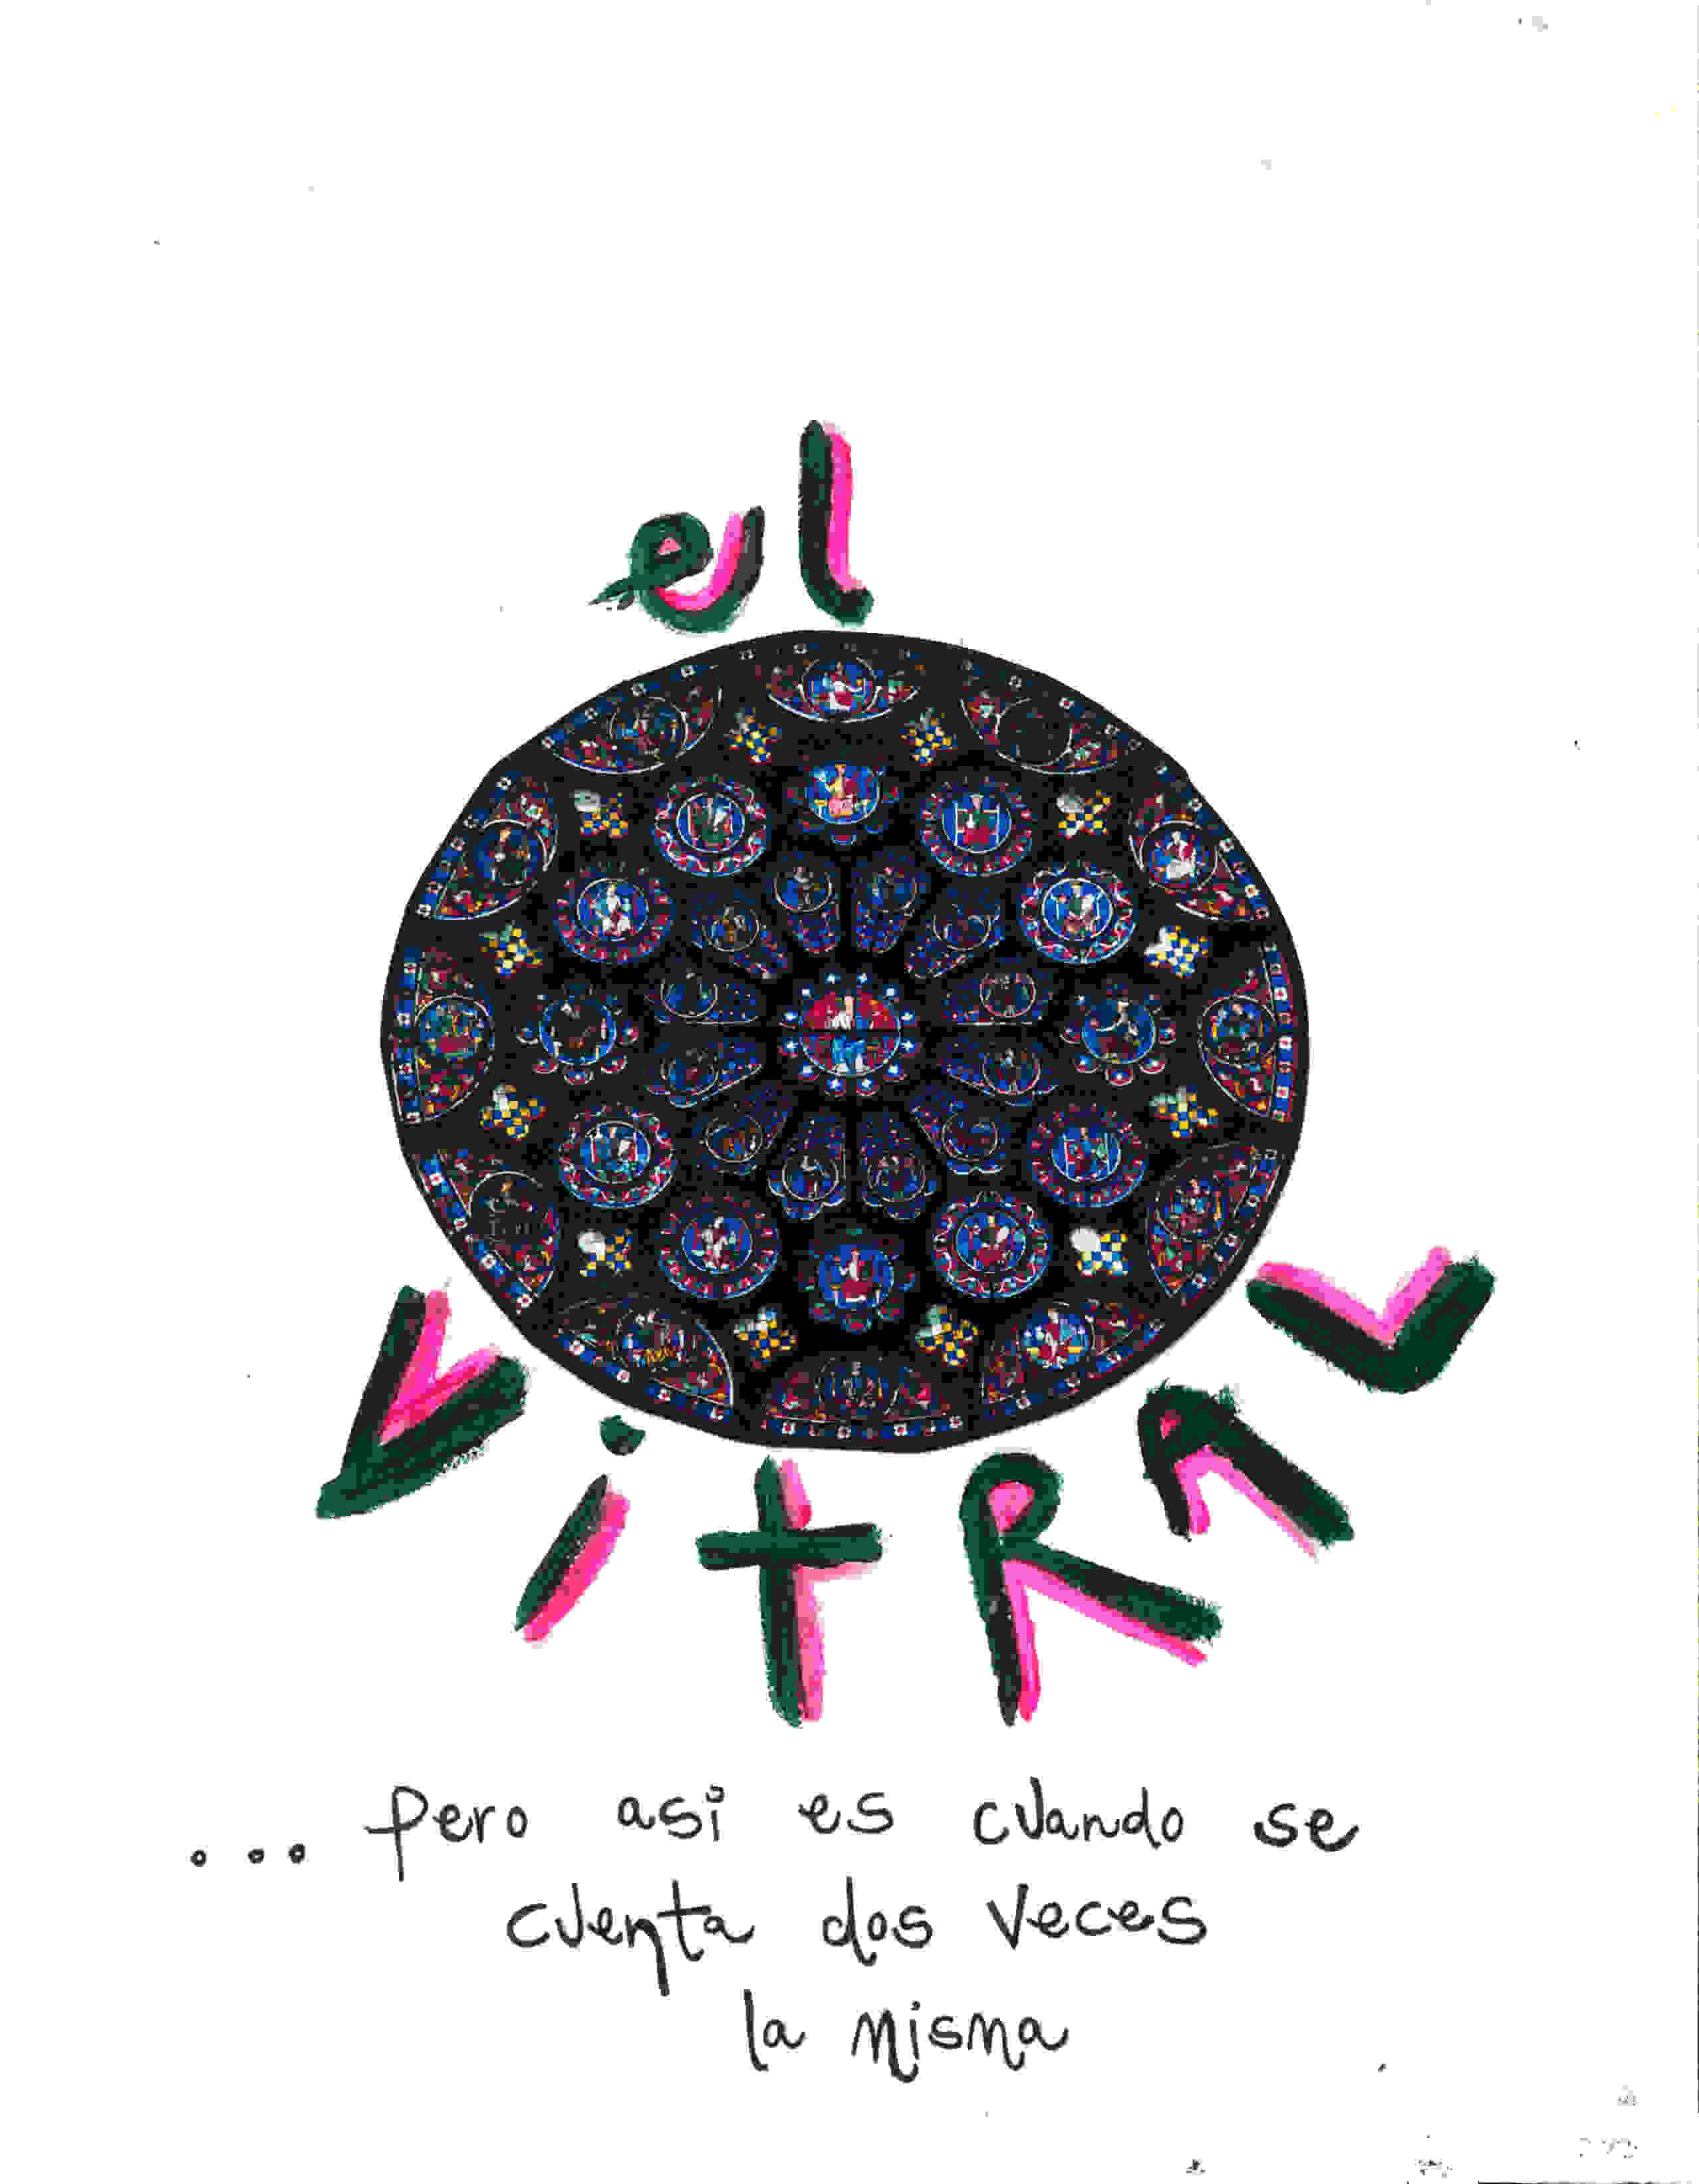 el
ViTRAL
... pero asi es cuando se
cuenta dos veces
la misma